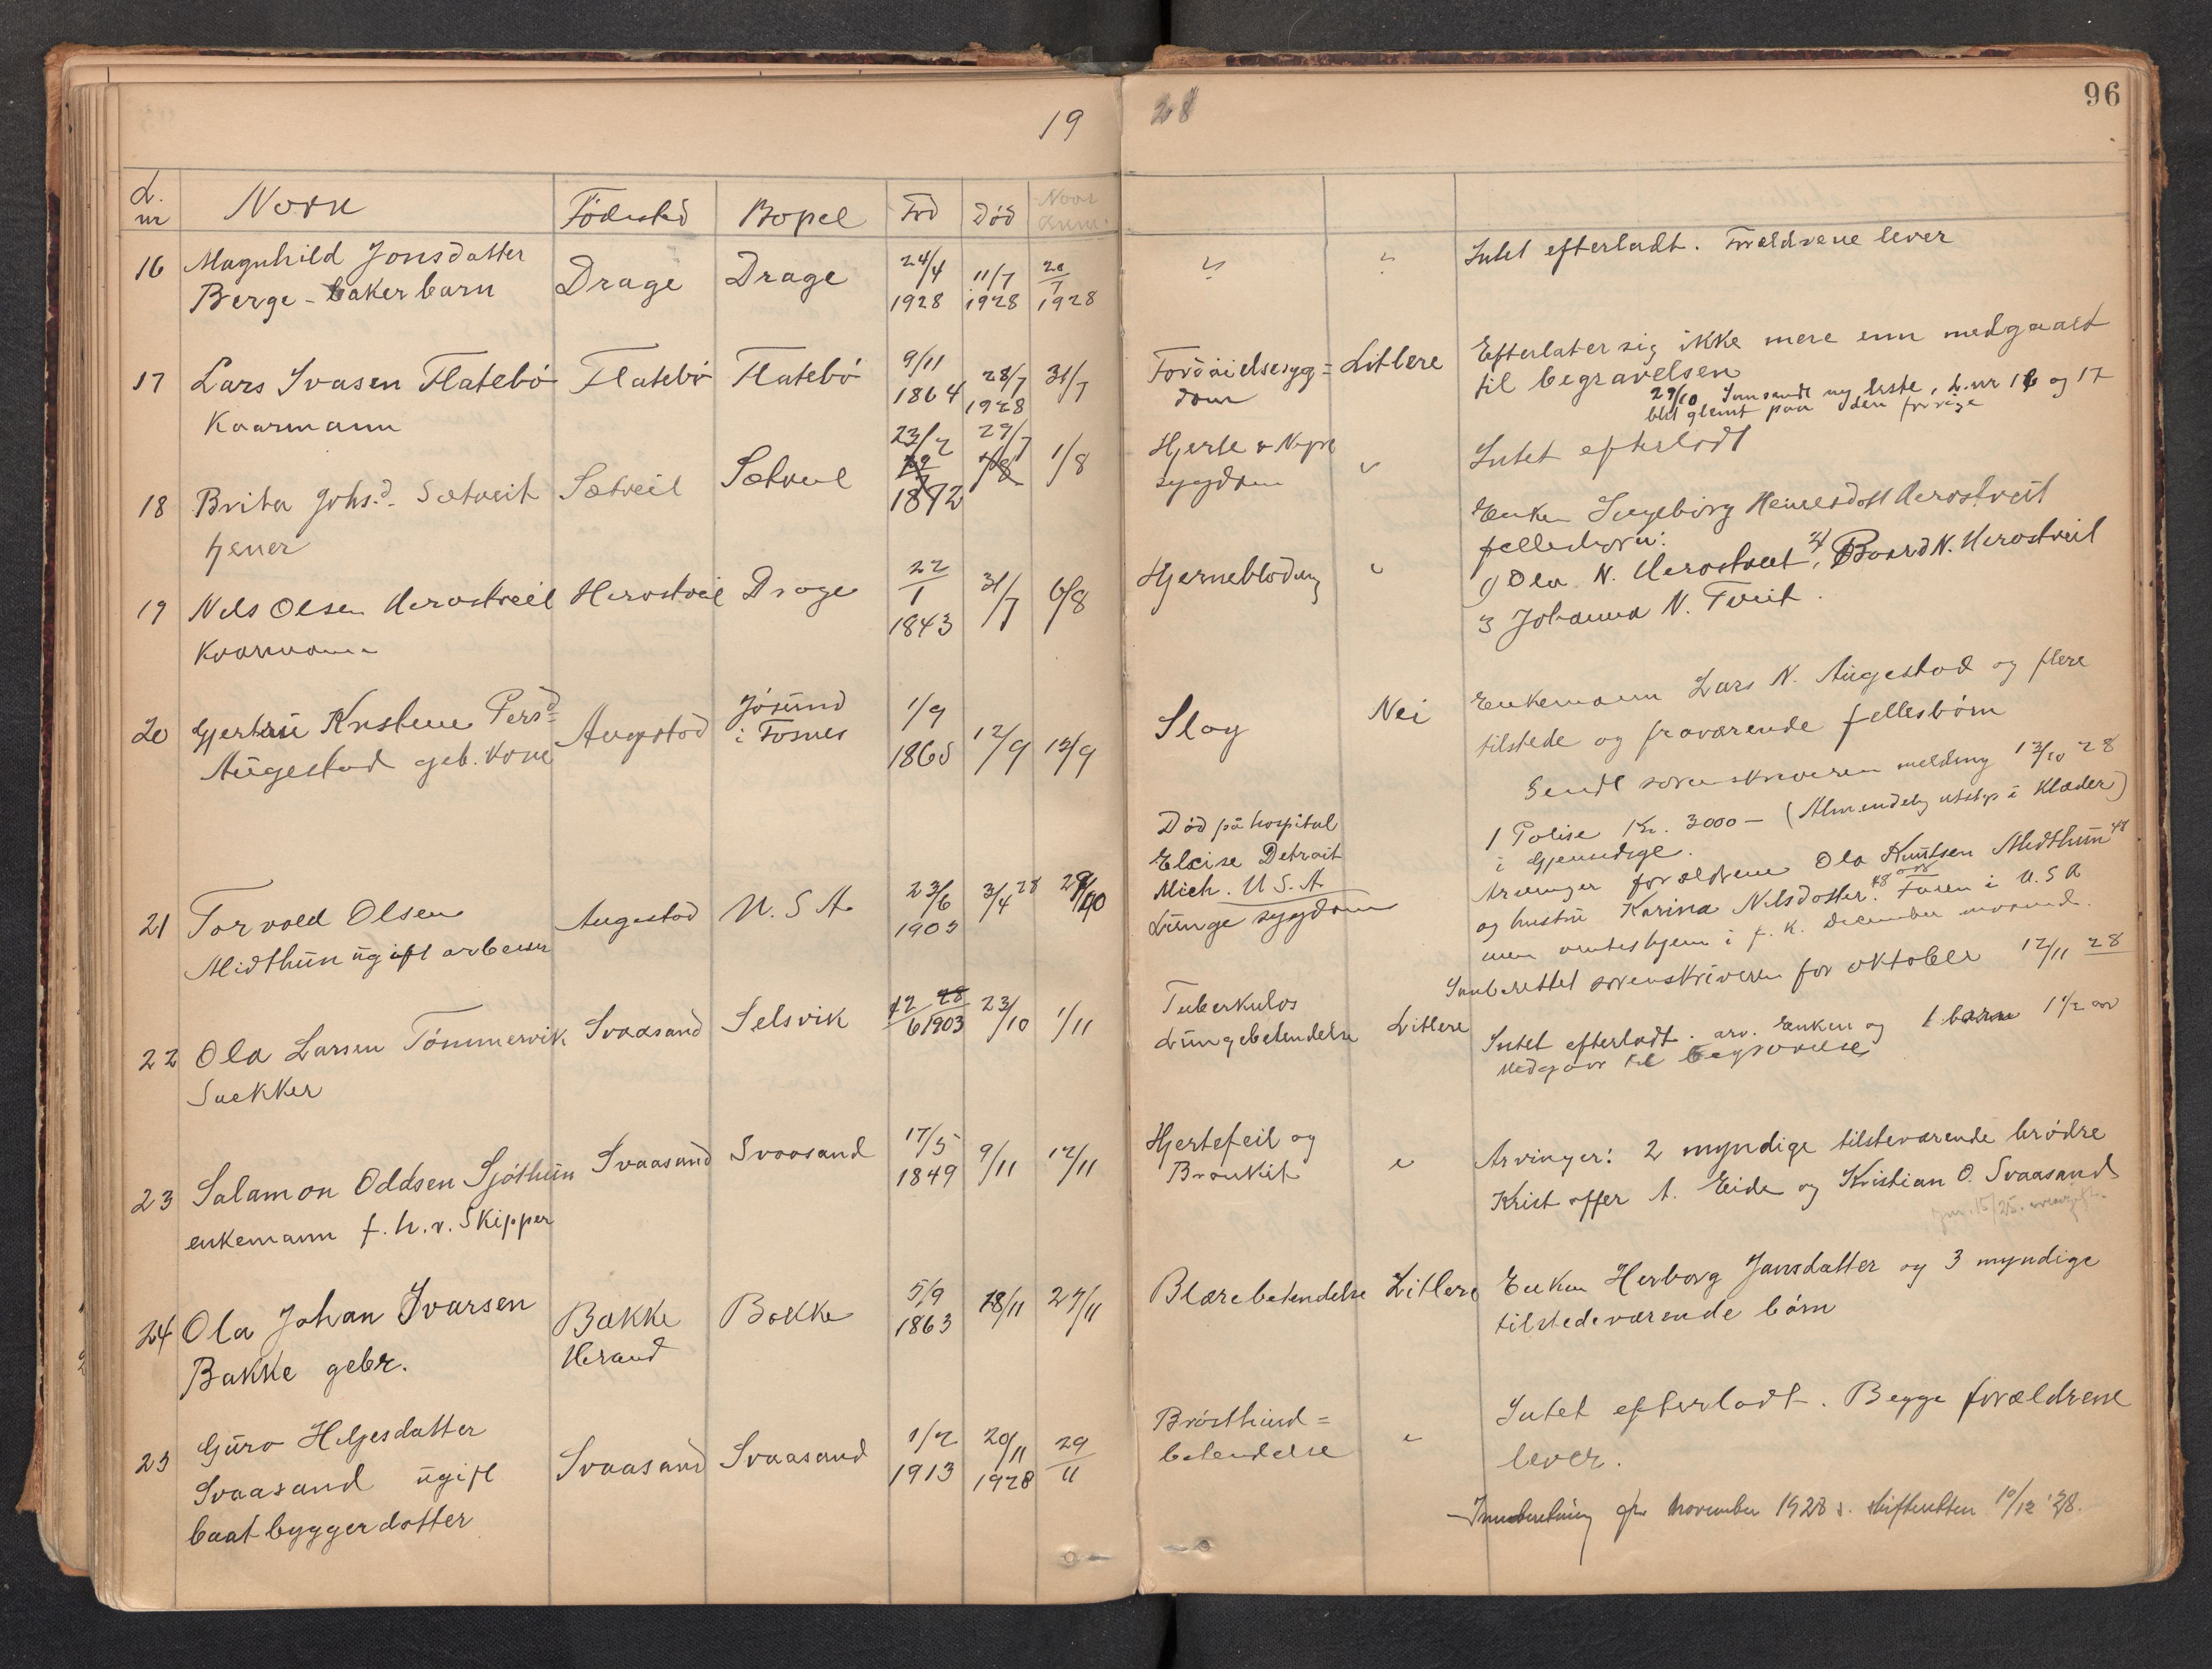 19 28
96
L. nr Navn Födested Bopel Fød Död Naar
16 Magnhild Jonsdatter Drage Drage 24/4 11/7 20/7 " "
Berge - bakerbarn 1928 1928 1928
Intet efterladt. Forældrene lever
17 Lars Ivasen Flatebö Flatebö Flatebö 9/11 1864 28/7 1928 31/7
Kaarmann
Fordöielsesyg= Litlere
dom
Efterlater sig ikke mere enn medgaaet
til begravelsen
29/10 Innsendt ny liste, L.nr 16 og 17
blit glemt paa den forrige
18 Brita Johs.d. Sætveit Sætveit Sætveit 23/2 1872 29/7 1/8
Hjerte & Nyre "
sygdom
Intet efterladt
19 Nils Olsen Herostveit Herostveit Drage 22/1 1843 31/7 6/8
Kaarmann
Hjerneblödning "
Enken Ingeborg Herostveit
fellesbörn:
1) Ola N. Herostveit, 2) Baard N. Herostveit
3 Johanna N. Tveit.
20 Gjertrü Kristine Persd. Augestad Jösünd 1/9 1865 12/9 12/9
Aügestad geb. kone i Fosnes
Slag Nei
Enkemann Lars N. Aügestad og flere
tilstede og fraværende fellesbörn
Sendt sorenskriveren melding 13/10 28
21 Torvald Olsen Augestad U.S.A. 23/6 1903 3/4 28
Midthün ügift arbeider
Död på hospital
Eloise Detroit
Mich. U.S.A.
Lünge sygdom
1 Polise Kr. 3000 - (Almindelig utstyr i Klæder)
i Gjensidige.
Arvinger forældrene Ola Knütsen Midthün
og hustrü Karina Nilsdatter. Faren i U.S.A
men ventes hjem i december maaned.
Innberettet sorenskriveren for oktober 12/11 28
22 Ola Larsen Tömmervik Svaasand Selsvik 12/6 1903 23/10 1/11
Snekker
Tuberkulos Litlere
Lüngebetendelse
Intet efterladt. arv. Enken og 1 barn 1 1/2 aar
Medgaar til begravelse
23 Salamon Oddsen Sjöthün Svaasand Svaasand 17/5 1849 9/11 12/11
enkemann f. h.v. Skipper
Hjertefeil og "
Bronkit
Arvinger: 2 myndige tilsteværende brödre
Kristoffer A. Eide og Kristian O. Svaasand
24 Ola Johan Ivarsen Bakke Bakke 5/9 1863 18/11 27/11
Bakke gebr. Herand
Blærebetendelse Litlere
Enken Herborg Jansdatter og 3 myndige
tilstedeværende börn
25 Güro Helgesdatter Svaasand Svaasand 1/2 1913 20/11 1928 29/11
Svaasand ügift
baatbyggerdatter
Brösthind= "
betendelse
Intet efterladt. Begge forældrene
lever.
Innberetning for November 1928 s. skifteretten 10/12 '28.